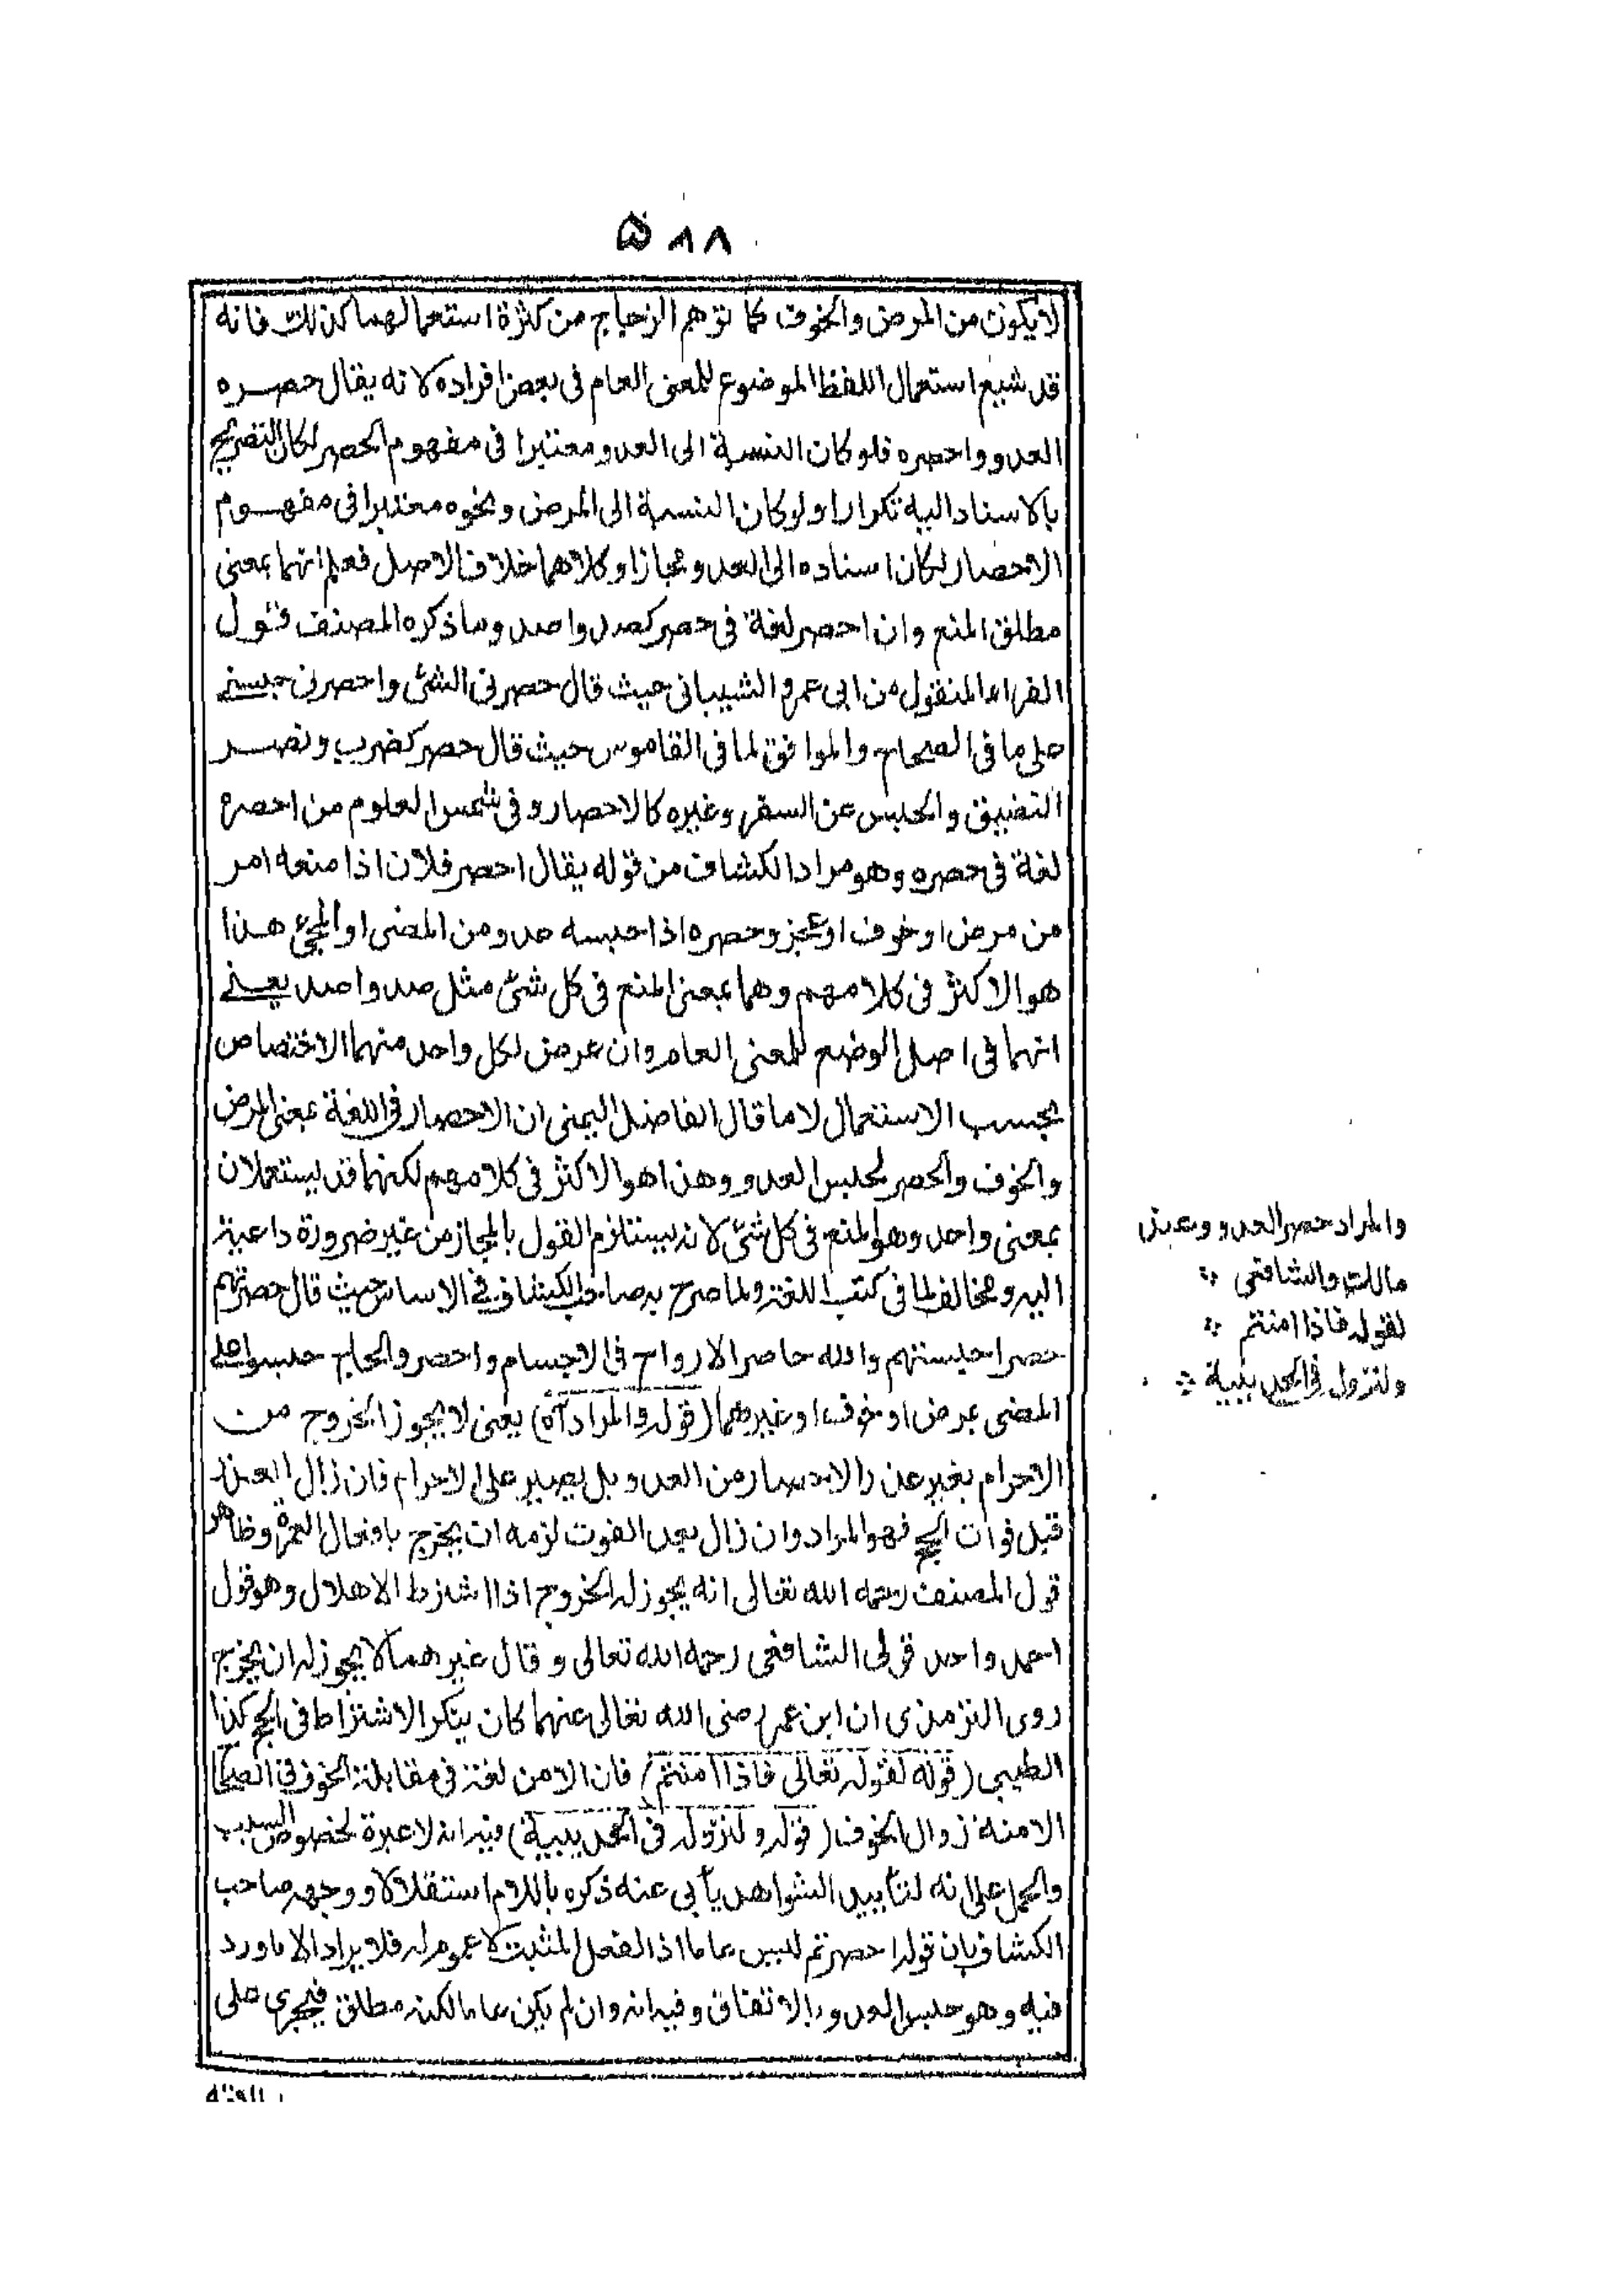 ۵۸۸
لا يكون من المرض والخوف كما توهم الزجاج من كثرة استعمالهما كذلك فانه
قد شيع استعمال اللفظ الموضوع للمعنى العام فى بعض افراده لانه يقال حصره
العدو واحصره فلو كان النسبة الى العدو معتبرا فى مفهوم الحصر لكان التصريح
بالاسناد اليه تكرارا ولو كان النسبة الى المرض ونحوه معتبرا فى مفهوم
الاحصار لكان اسناده الى العدو مجازا وكلاهما خلاف الاصل فعلم انهما بمعنى
مطلق المنع وان احصر لغة فى حصر كصد واصد وما ذكره المصنف قول
الفراء المنقول من ابى عمرو الشيبانى حيث قال حصرنى الشئ واحصرنى حبسنے
على ما فى الصحاح والموافق لما فى القاموس حيث قال حصر كضرب ونصر
التضييق والحبس عن السفر وغيره كالاحصار وفى شمس العلوم من احصره
لغة فى حصره وهو مراد الكشاف من قوله يقال احصر فلان اذا منعه امر
من مرض او خوف او عجز وحصره اذا حبسه عدو من المضى او المجئ هذا
هو الاكثر فى كلامهم وهما بمعنى المنع فى كل شئ مثل صد واصد يعنے
انهما فى اصل الوضع للمعنى العام وان عرض لكل واحد منهما الاختصاص
بحسب الاستعمال لا ما قال الفاضل اليمنى ان الاحصار فى اللغة بمعنى المرض
والخوف والحصر لحبس العدو وهذا هو الاكثر فى كلامهم لكنهما قد يستعملان
بمعنى واحد وهو المنع فى كل شئ لانه يستلزم القول بالمجاز من غير ضرورة داعية
اليه ومخالف لما فى كتب اللغة ولما صرح به صاحب الكشاف فى الاساس حيث قال حصرتهم
حصرا حبستهم والله حاصر الارواح فى الاجسام واحصر والحاج حبسوا على
المضى بمرض او خوف او غيرهما (قوله والمراد آه) يعنى لا يجوز الخروج من
الاحرام بغير عذر الاحصار من العدو بل يصبر على الاحرام فان زال العذر
قبل فوات الحج فهو المراد وان زال بعد الفوت لزمه ان يخرج بافعال العمرة وظاهر
قول المصنف رحمه الله تعالى انه يجوز له الخروج اذا اشترط الاهلال وهو قول
احمد واحد قولى الشافعى رحمه الله تعالى وقال غيرهما لا يجوز له ان يخرج
روى الترمذى ان ابن عمر رضى الله تعالى عنهما كان ينكر الاشتراط فى الحج كذا
الطيبى (قوله لقوله تعالى فاذا امنتم) فان الامن لغة فى مقابلة الخوف فى الصحاح
الامنة زوال الخوف (قوله ولنزوله فى الحديبية) فيه انه لا عبرة لخصوص السبب
والحمل على انه لتأييد الشواهد يأبى عنه ذكره باللام استقلالا ووجهه صاحب
الكشاف بان قوله احصرتم ليس عاما اذ الفعل المثبت لا عموم له فلا يراد الا ما ورد
فيه وهو حبس العدو بالاتفاق وفيه انه وان لم يكن عاما لكنه مطلق فيجرى على
والمراد حصر العدو وعند
مالك والشافعى
لقوله فاذا امنتم
ولنزوله فى الحديبية